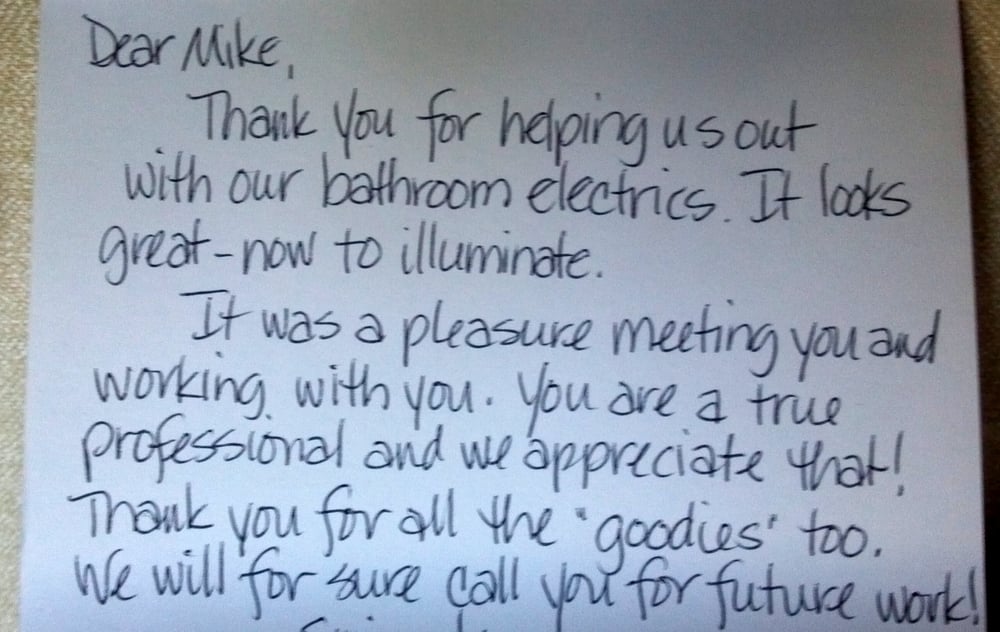 Dear Mike,
Thank you for helping us out
with our bathroom electrics. It looks
great - now to illuminate.
It was a pleasure meeting you and
working with you. You are a true
professional and we appreciate that!
Thank you for all the 'goodies' too.
We will for sure call you for future work!